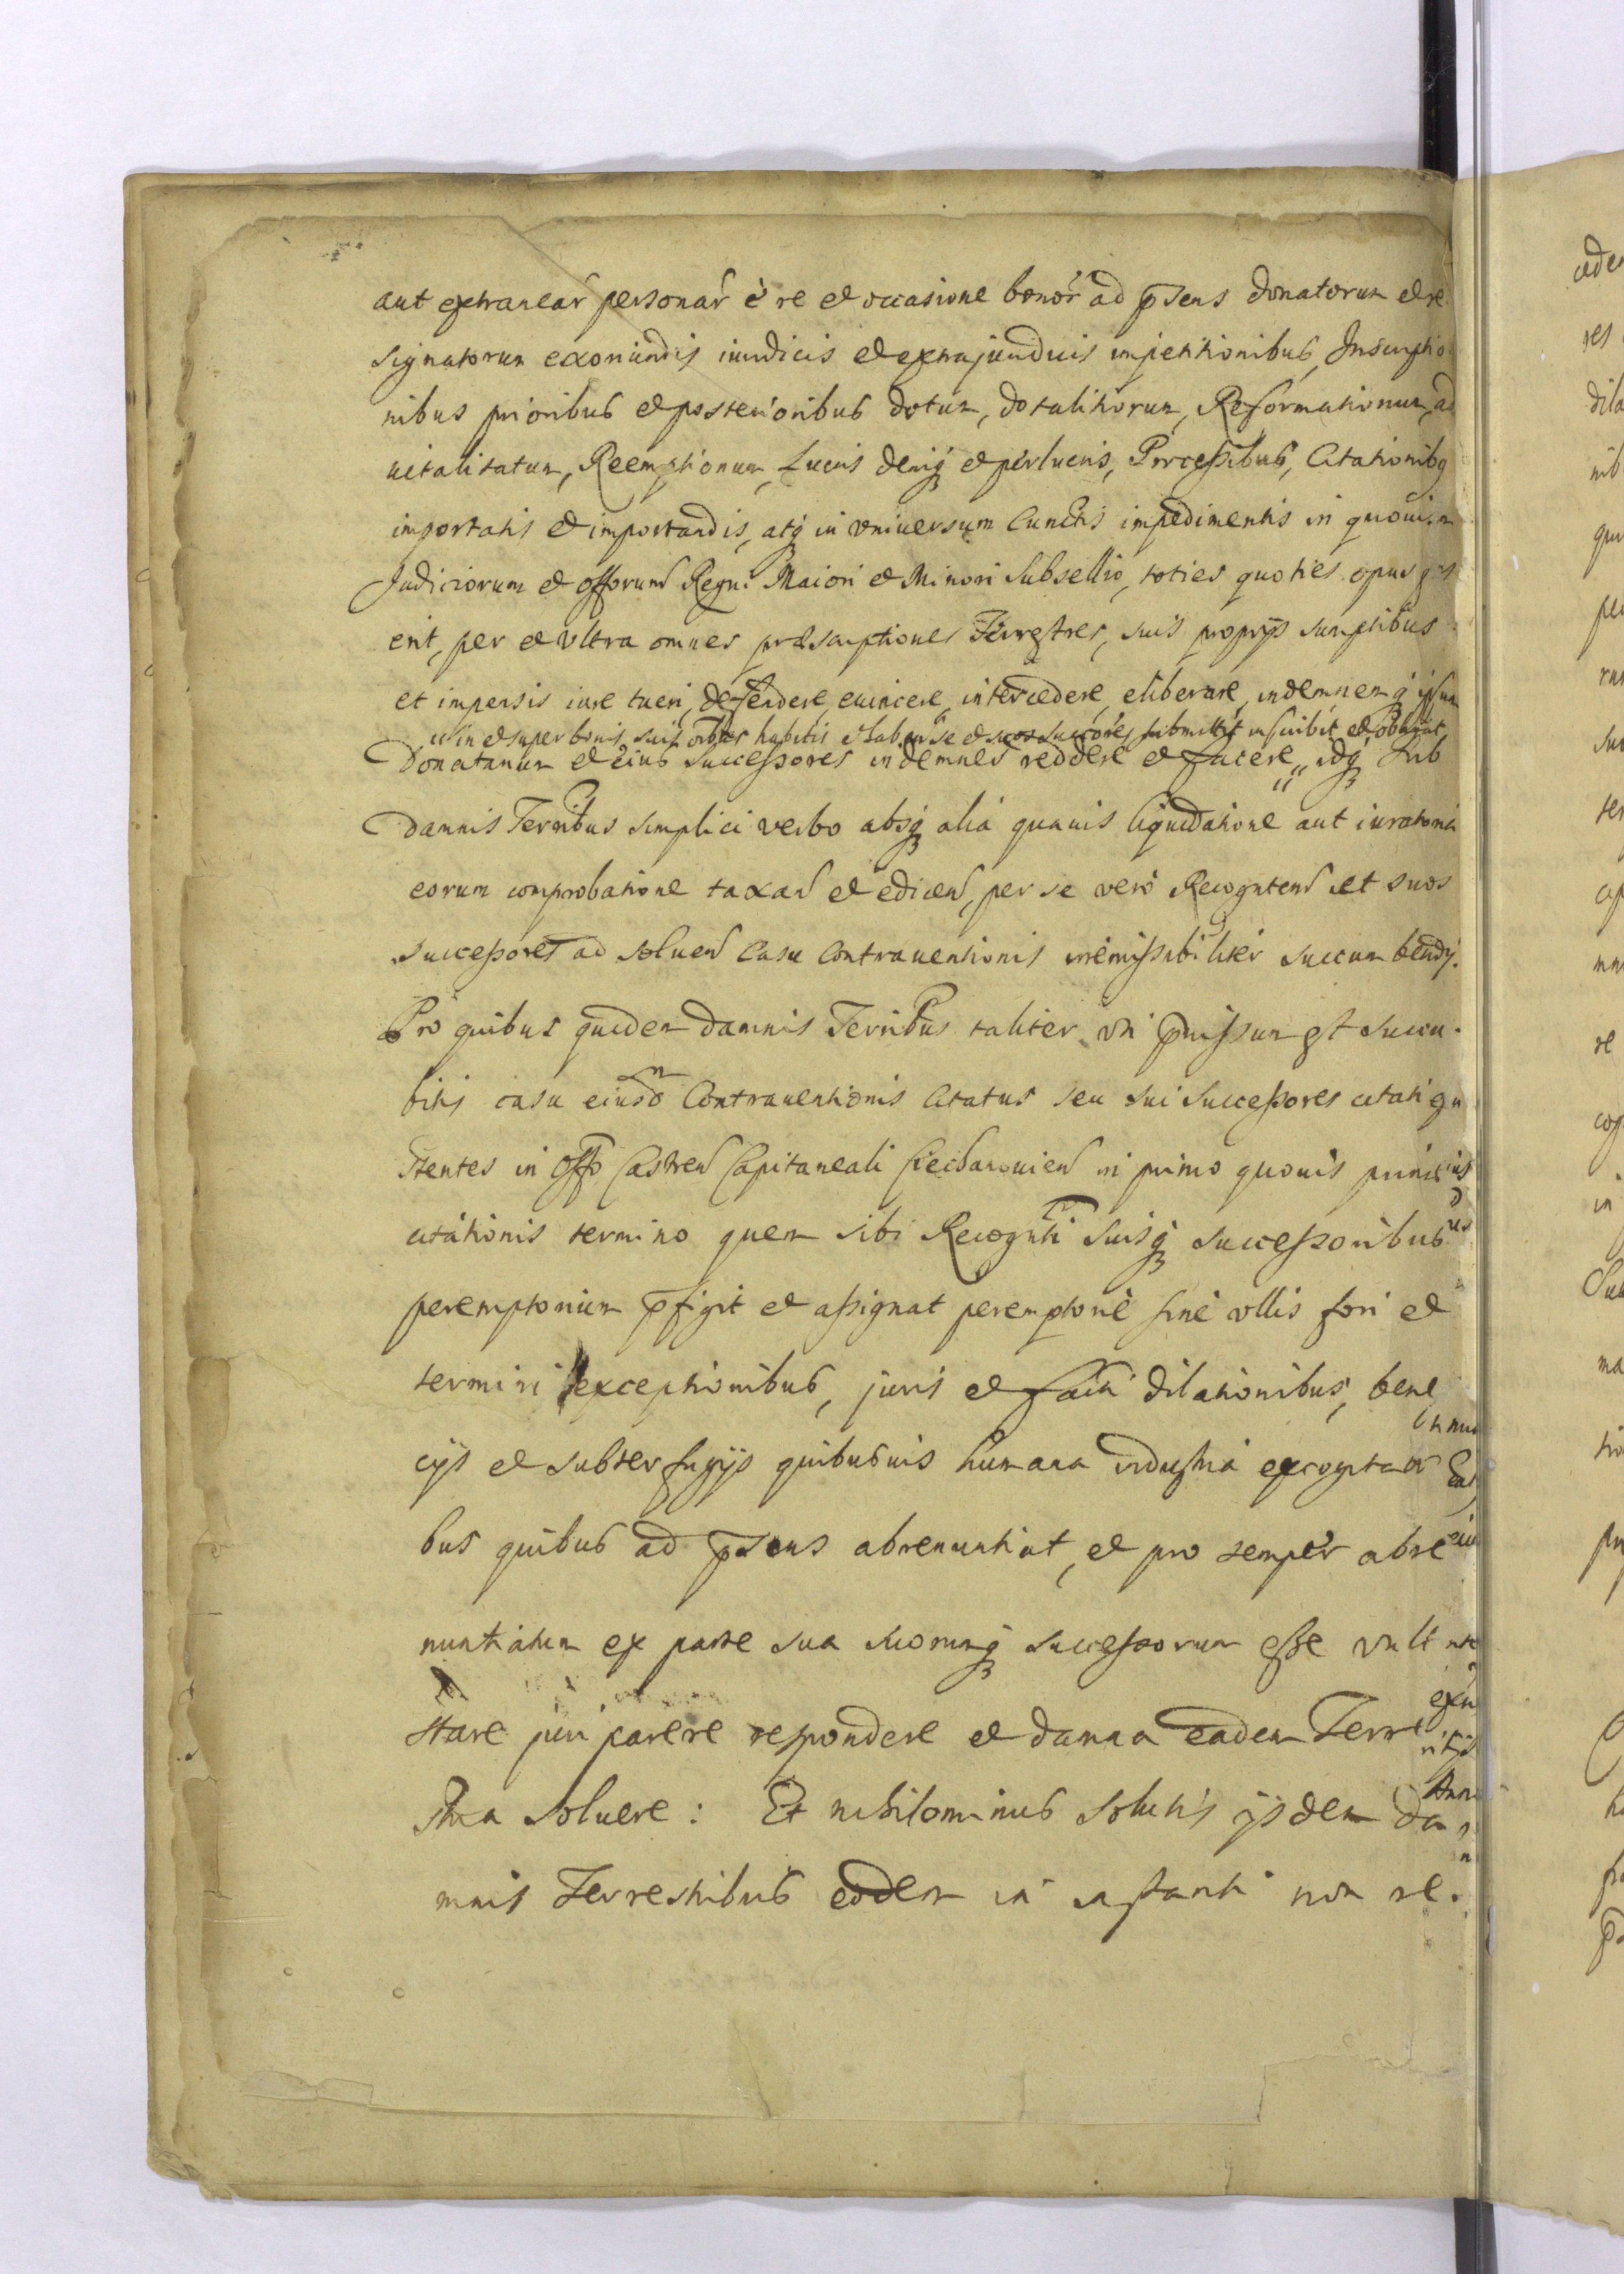 aut extranear personar è re et occasione bonor ad psens donatorum et re
signatorum exoriundis iuridicis et extrajuridicis impetitionibus, Inscriptio
nibus prioribus et posterioribus dotum, dotalitiorum, Reformationum, ad
uitalitatum, Reemptionum, Lucris deniq et perlucris, Processibus, Citationibq
importatis et importandis, atq in vniversum cunctis impedimentis in quouism
Judiciorum et Offorum Regni Maiori et Minori Subsellio, toties quoties opus
erit, per et vltra omnes præscriptiones Terrestres, suis proprys sumptibus
et impensis iure tueri, defendere, euincere, intercedere, eliberare, indemnemq ipsum
in et super bonis suis oibus habitis et habens se et suos succores submittit inscribit et obligat
Donatarium et eius successores indemnes reddere et facere " idq sub
damnis Terribus simplici verbo absq alia quauis liquidatione aut iuratoria
eorum comprobatione taxan et edicen, per se verò Recognten et suos
successores ad soluen casu Contrauentionis irremissibiliter succumbendi.
Pro quibus quidem damnis Terribus taliter vti pmissum est succu-
bitis casu eiusdm Contrauentionis Citatus seu sui successores citati
stentes in Offo Castren Capitaneali Ciechanouien in primo quouis
citationis termino quem sibi Recognti suisq successoribus
peremptorium pfigit et assignat peremptorie sine vllis fori et
termini exceptionibus, juris et facti dilationibus, bene
cijs et subterfugijs quibusuis humana industria excogita
bus quibus ad psens abrenuntiat, et pro semper abre
nuntiatum ex parte sua suorumq successorum esse vult
stare juri parere respondere et damna eadem Terre
stria soluere: Et nihilominus solutis ijsdem da
mnis Terrestribus eodem in instanti non re-